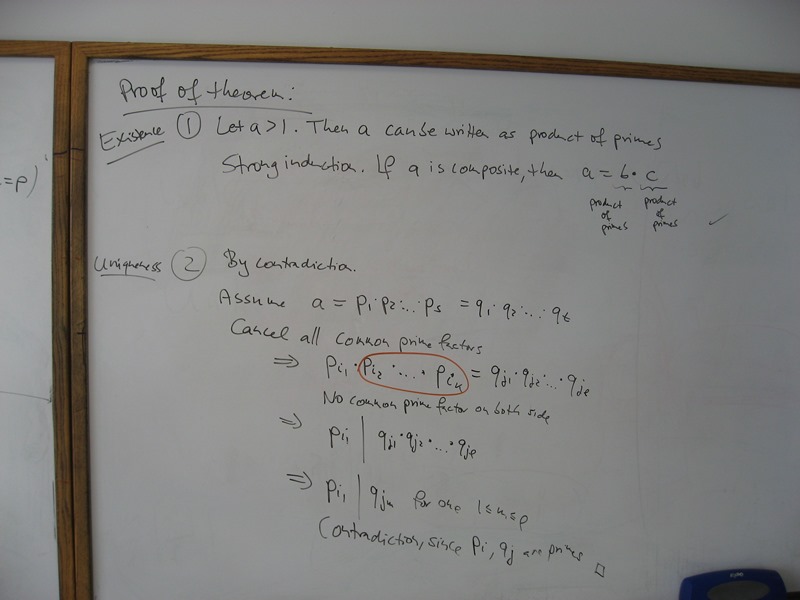 =p)
Proof of theorem:
Existence ① Let a>1. Then a can be written as product of primes
Strong induction. If a is composite, then a = b · c
product of primes product of primes ✓
Uniqueness ② By contradiction.
Assume a = p₁·p₂·...·pₛ = q₁·q₂·...·qₜ
Cancel all common prime factors
⇒ pᵢ₁·pᵢ₂·...·pᵢₖ = qⱼ₁·qⱼ₂·...·qⱼₑ
No common prime factor on both side
⇒ pᵢ₁ | qⱼ₁·qⱼ₂·...·qⱼₑ
⇒ pᵢ₁ | qⱼₘ for one 1≤m≤e
Contradiction, since pᵢ, qⱼ are primes □